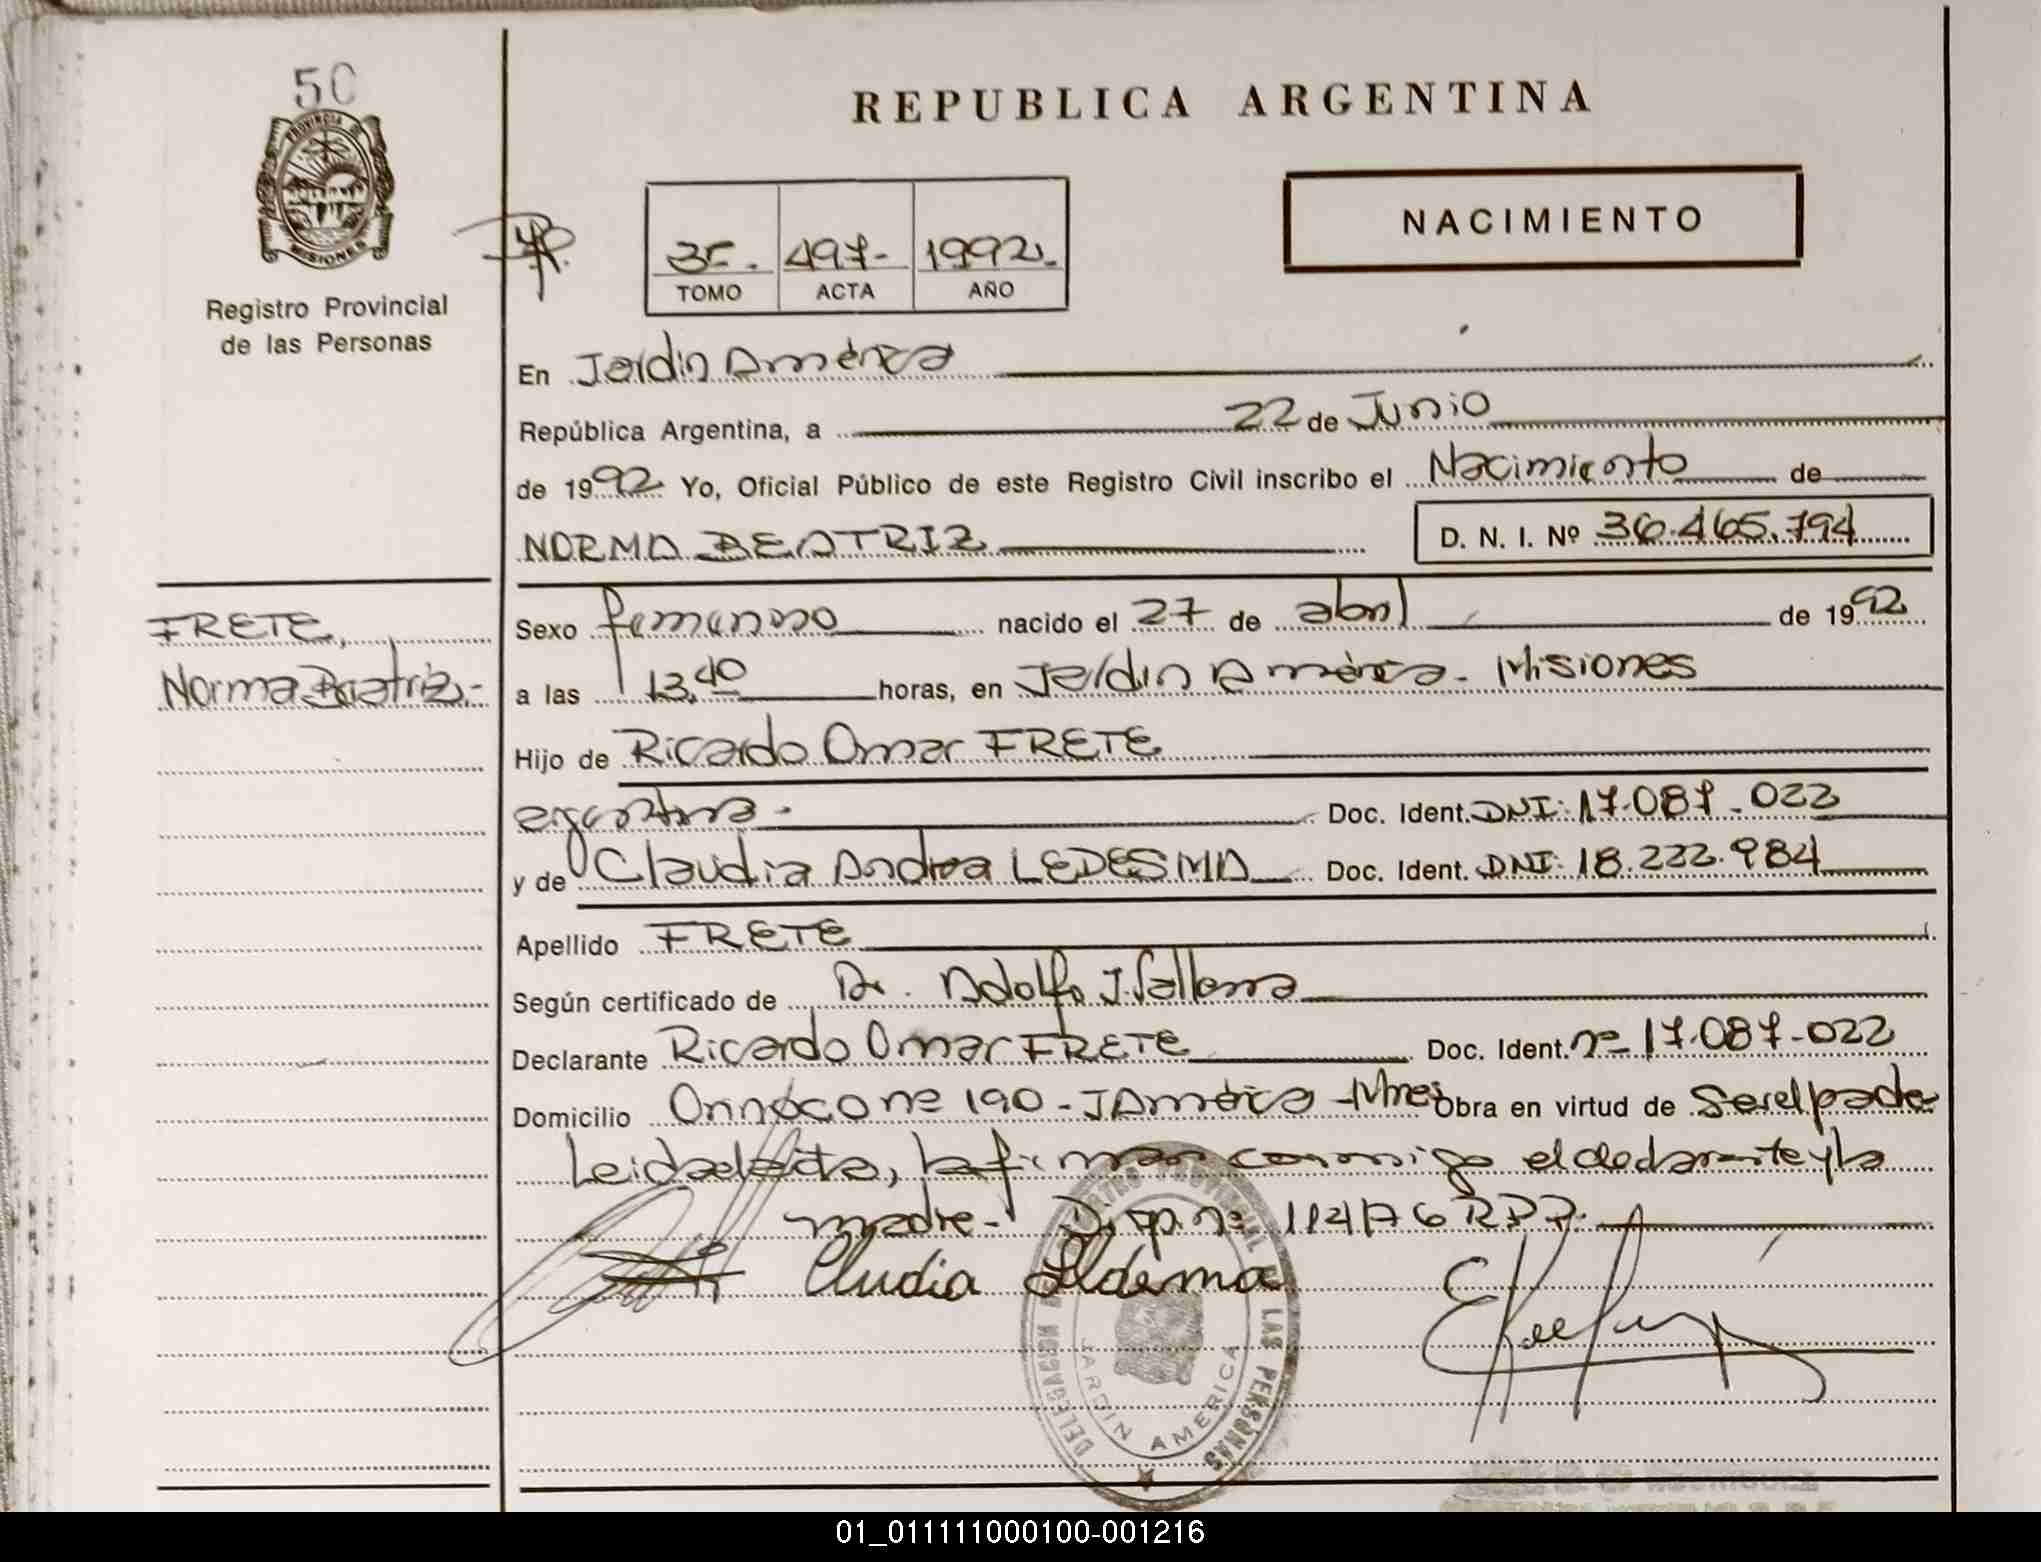 50
REPUBLICA ARGENTINA
PROVINCIA DE
MISIONES
NACIMIENTO
497- 1992.
TOMO ACTA AÑO
Registro Provincial
de las Personas
En Jardín América
República Argentina, a 22 de Junio
de 1992 Yo, Oficial Público de este Registro Civil inscribo el Nacimiento de
NORMA BEATRIZ D. N. I. Nº 36.465.794
FRETE,
Norma Beatriz.-
Sexo femenino nacido el 27 de abril de 1992
a las 13,40 horas, en Jardín América - Misiones
Hijo de Ricardo Omar FRETE
argentina - Doc. Ident. DNI: 17.087.022
y de Claudia Andrea LEDESMA Doc. Ident. DNI: 18.222.984
Apellido FRETE
Según certificado de Dr. Adolfo J.
Declarante Ricardo Omar FRETE Doc. Ident. nº 17.087.022
Domicilio Orinoco nº 190 - J América - Mnes Obra en virtud de Ser el padre
Leida el acta, la firman conmigo el declarante y la
madre.- Disp. nº 114/76 RPP.
Cludia
DELEGACION LAS PERSONAS
JARDIN AMERICA
01_011111000100-001216